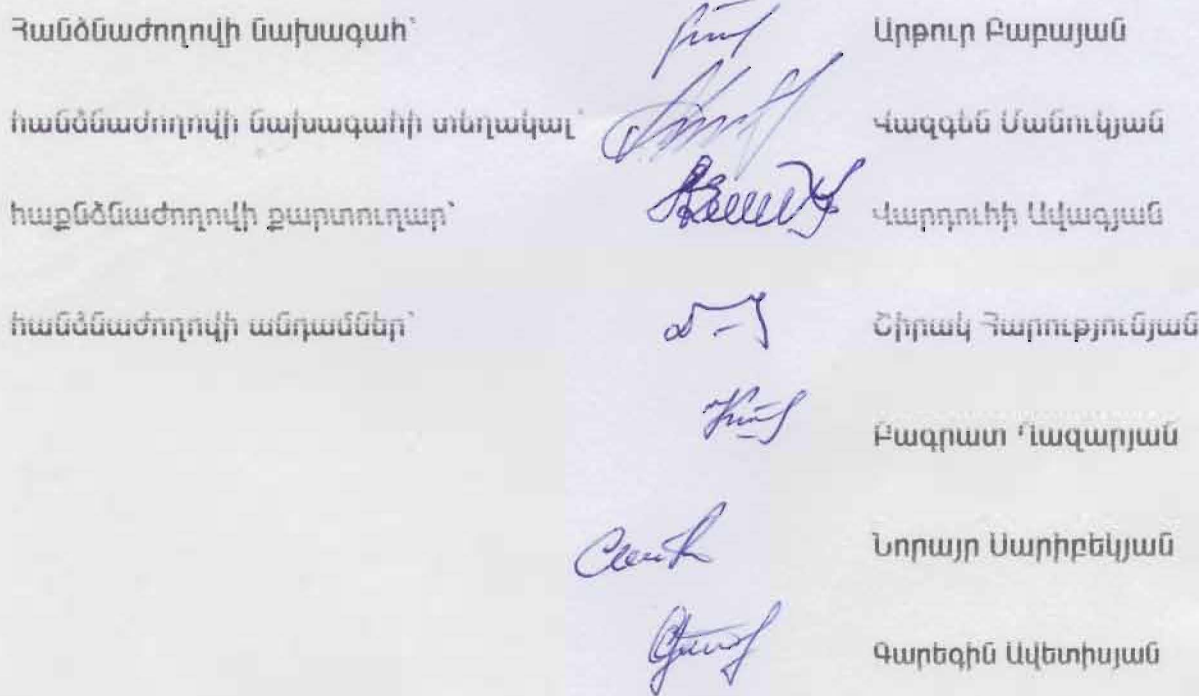 Հանձնաժողովի նախագահ՝ Արթուր Բաբայան
հանձնաժողովի նախագահի տեղակալ՝ Վազգեն Մանուկյան
հաքնձնաժողովի քարտուղար՝ Վարդուհի Ավագյան
հանձնաժողովի անդամներ՝ Շիրակ Հարությունյան
Բագրատ Ղազարյան
Նորայր Սարիբեկյան
Գարեգին Ավետիսյան